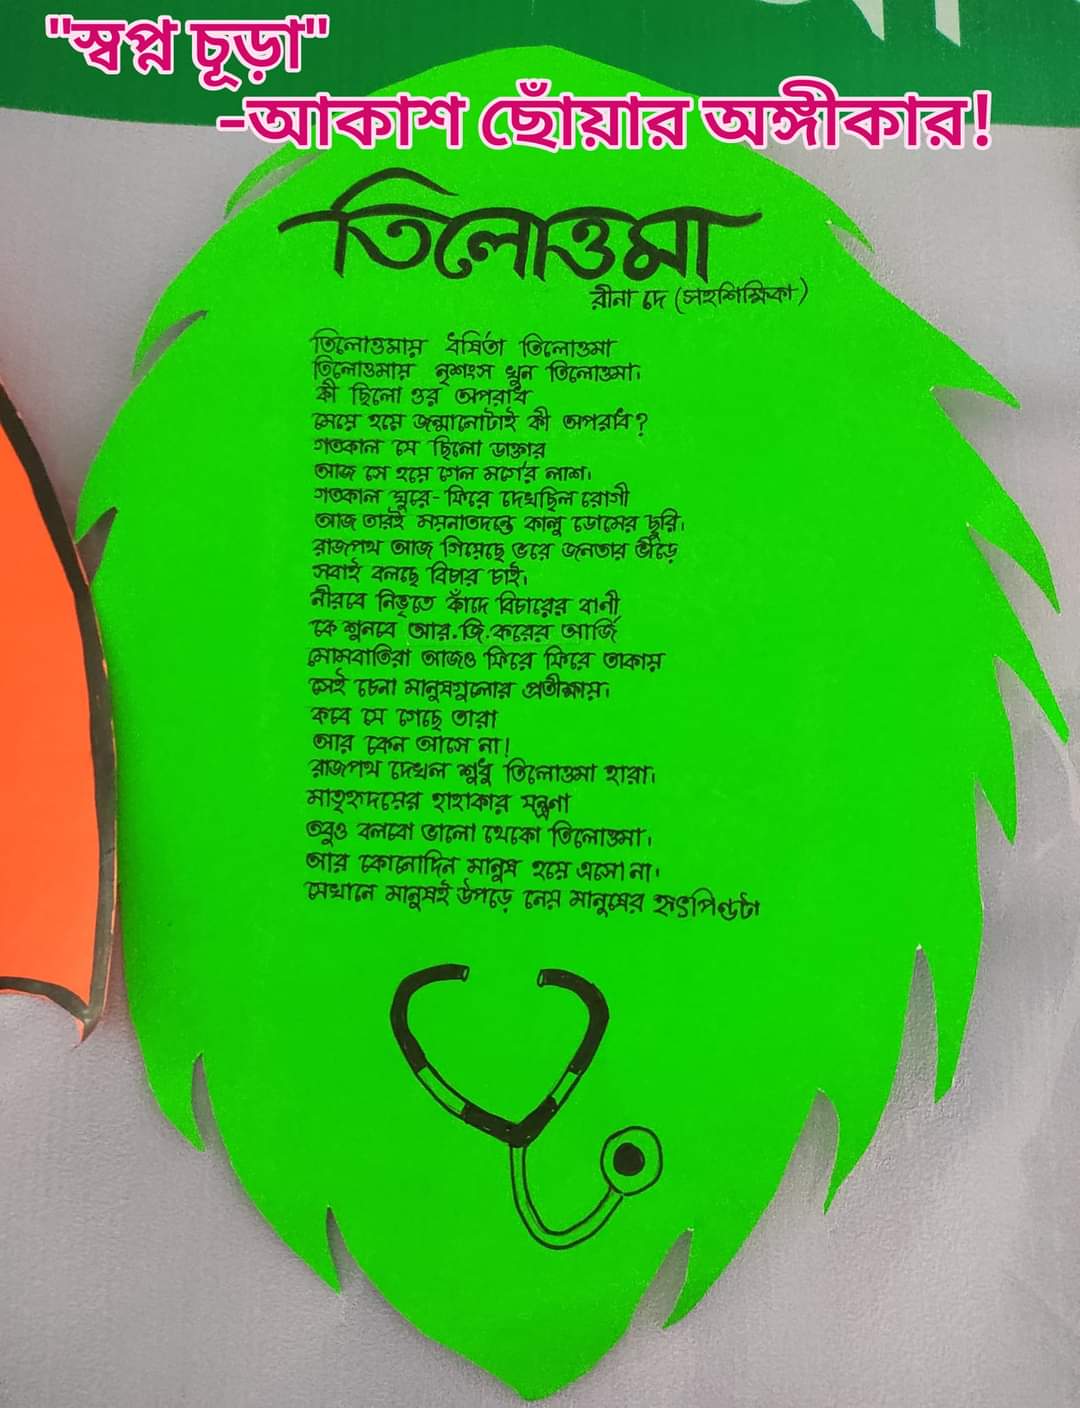 "স্বপ্ন চূড়া"
-আকাশ ছোঁয়ার অঙ্গীকার!
তিলোত্তমা
রীনা দে (সহশিক্ষিকা)
তিলোত্তমায় ধর্ষিতা তিলোত্তমা
তিলোত্তমায় নৃশংস খুন তিলোত্তমা।
কী ছিলো ওর অপরাধ
মেয়ে হয়ে জন্মানোটাই কী অপরাধ?
গতকাল যে ছিলো ডাক্তার
আজ সে হয়ে গেল মর্গের লাশ।
গতকাল ঘুরে-ফিরে দেখছিল রোগী
আজ তারই ময়নাতদন্তে কালু ডোমের ছুরি।
রাজপথ আজ গিয়েছে ভরে জনতার ভীড়ে
সবাই বলছে বিচার চাই।
নীরবে নিভৃতে কাঁদে বিচারের বানী
কে শুনবে আর.জি.করের আর্জি
মোমবাতিরা আজও ফিরে ফিরে তাকায়
সেই চেনা মানুষগুলোর প্রতীক্ষায়।
কবে যে গেছে তারা
আর কেন আসে না!
রাজপথ দেখল শুধু তিলোত্তমা হারা।
মাতৃহৃদয়ের হাহাকার যন্ত্রণা
তবুও বলবো ভালো থেকো তিলোত্তমা।
আর কোনোদিন মানুষ হয়ে এসো না।
যেখানে মানুষই উপড়ে নেয় মানুষের হৃৎপিণ্ডটা